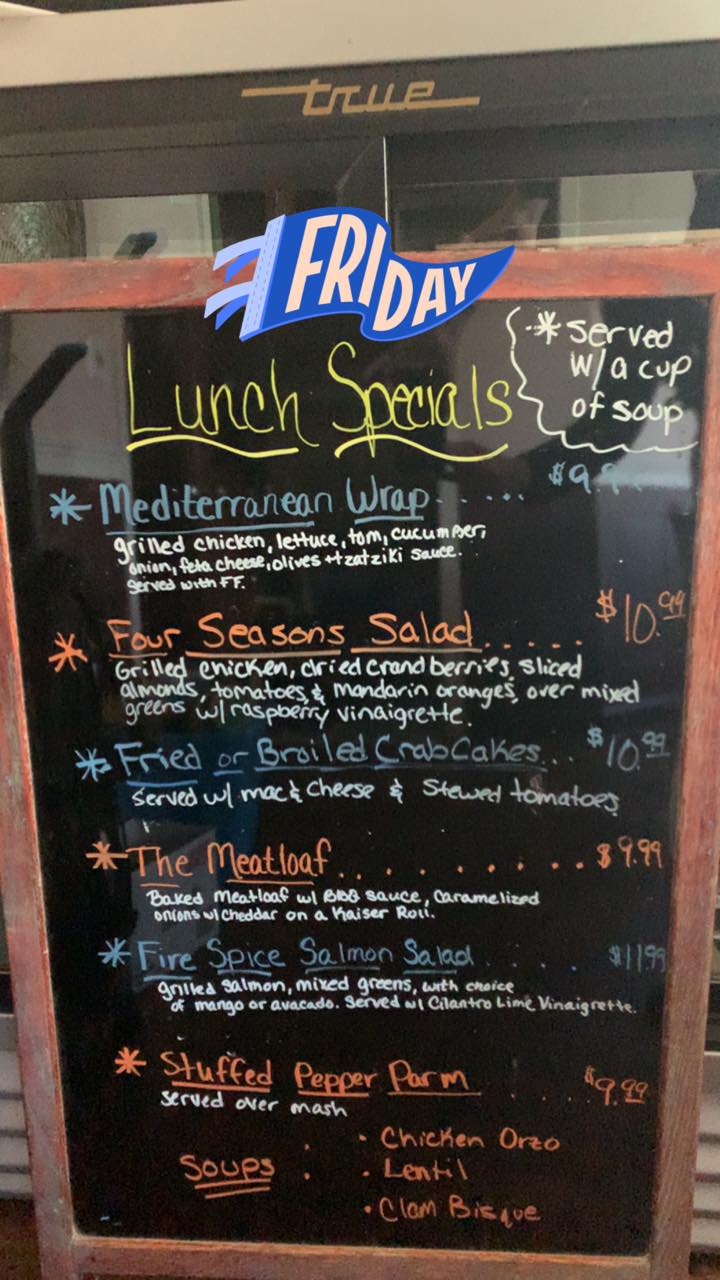 true
FRIDAY
Lunch Specials
* served
w/a cup
of soup
* Mediterranean Wrap..... $9.9
grilled chicken, lettuce, tom, cucumber,
onion, feta cheese, olives + tzatziki sauce.
Served with FF.
* Four Seasons Salad...... $10.99
Grilled chicken, dried crandberries, sliced
almonds, tomatoes, & mandarin oranges, over mixed
greens w/raspberry vinaigrette.
* Fried or Broiled Crab Cakes... $10.99
Served w/ mac & cheese & Stewed tomatoes
* The Meatloaf.. . . . . . . . . . . $9.99
Baked Meatloaf w/ BBQ sauce, Caramelized
onions w/ Cheddar on a Kaiser Roll.
* Fire Spice Salmon Salad . . . . $11.99
grilled Salmon, mixed greens, with choice
of mango or avacado. Served w/ Cilantro Lime Vinaigrette.
* Stuffed Pepper Parm . . . . $9.99
served over mash
Soups :
• Chicken Orzo
• Lentil
• Clam Bisque